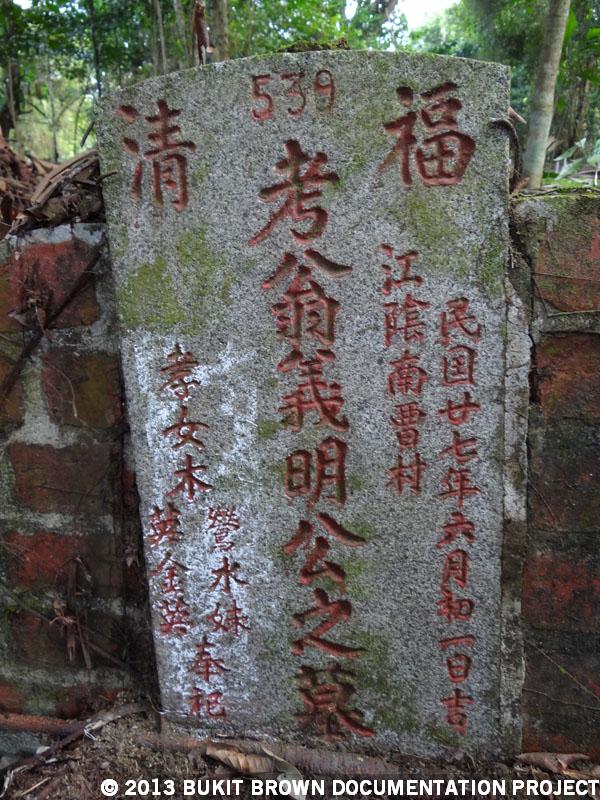 539
福清
民国廿七年六月初一日吉
江陰南曹村
考翁義明公之墓
孝女木
鶯水妹
英金英
奉祀
© 2013 BUKIT BROWN DOCUMENTATION PROJECT